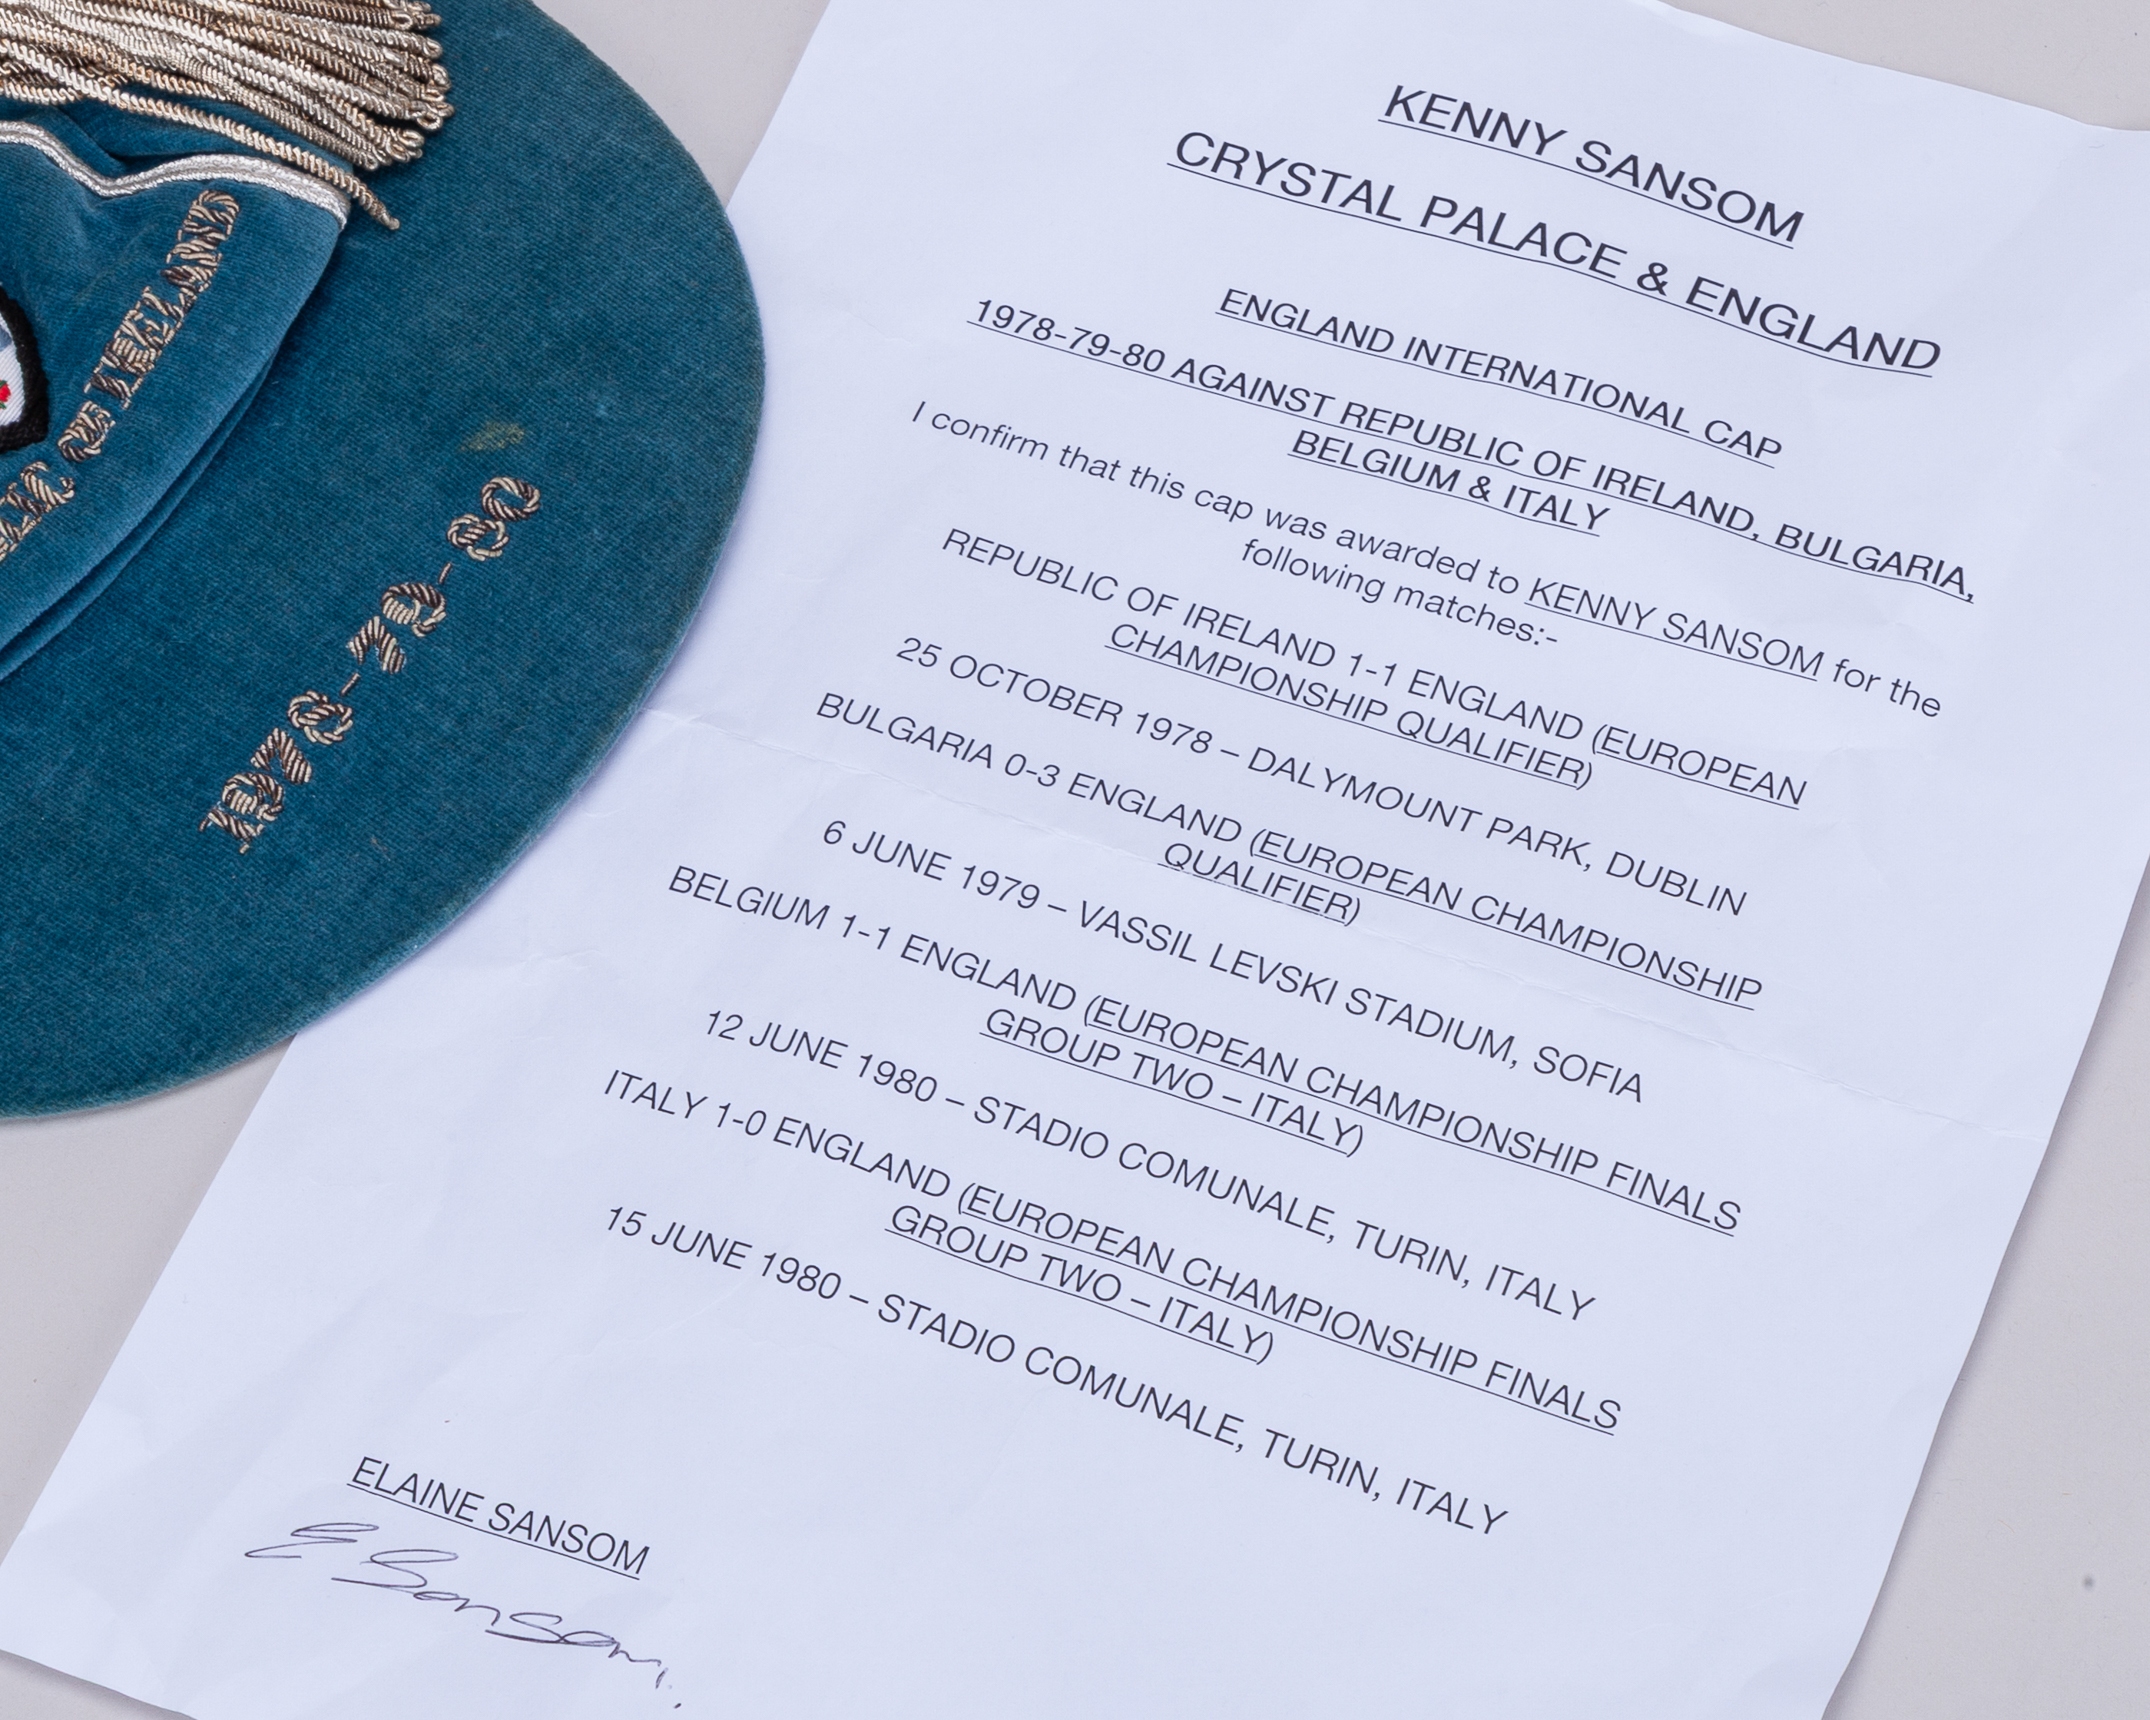 KENNY SANSOM
CRYSTAL PALACE & ENGLAND
ENGLAND INTERNATIONAL CAP
1978-79-80 AGAINST REPUBLIC OF IRELAND, BULGARIA,
BELGIUM & ITALY
I confirm that this cap was awarded to KENNY SANSOM for the
following matches:-
REPUBLIC OF IRELAND 1-1 ENGLAND (EUROPEAN
CHAMPIONSHIP QUALIFIER)
25 OCTOBER 1978 – DALYMOUNT PARK, DUBLIN
BULGARIA 0-3 ENGLAND (EUROPEAN CHAMPIONSHIP
QUALIFIER)
6 JUNE 1979 – VASSIL LEVSKI STADIUM, SOFIA
BELGIUM 1-1 ENGLAND (EUROPEAN CHAMPIONSHIP FINALS
GROUP TWO – ITALY)
12 JUNE 1980 – STADIO COMUNALE, TURIN, ITALY
ITALY 1-0 ENGLAND (EUROPEAN CHAMPIONSHIP FINALS
GROUP TWO – ITALY)
15 JUNE 1980 – STADIO COMUNALE, TURIN, ITALY
ELAINE SANSOM
E Sansom.
OF IRELAND
1978-79-80